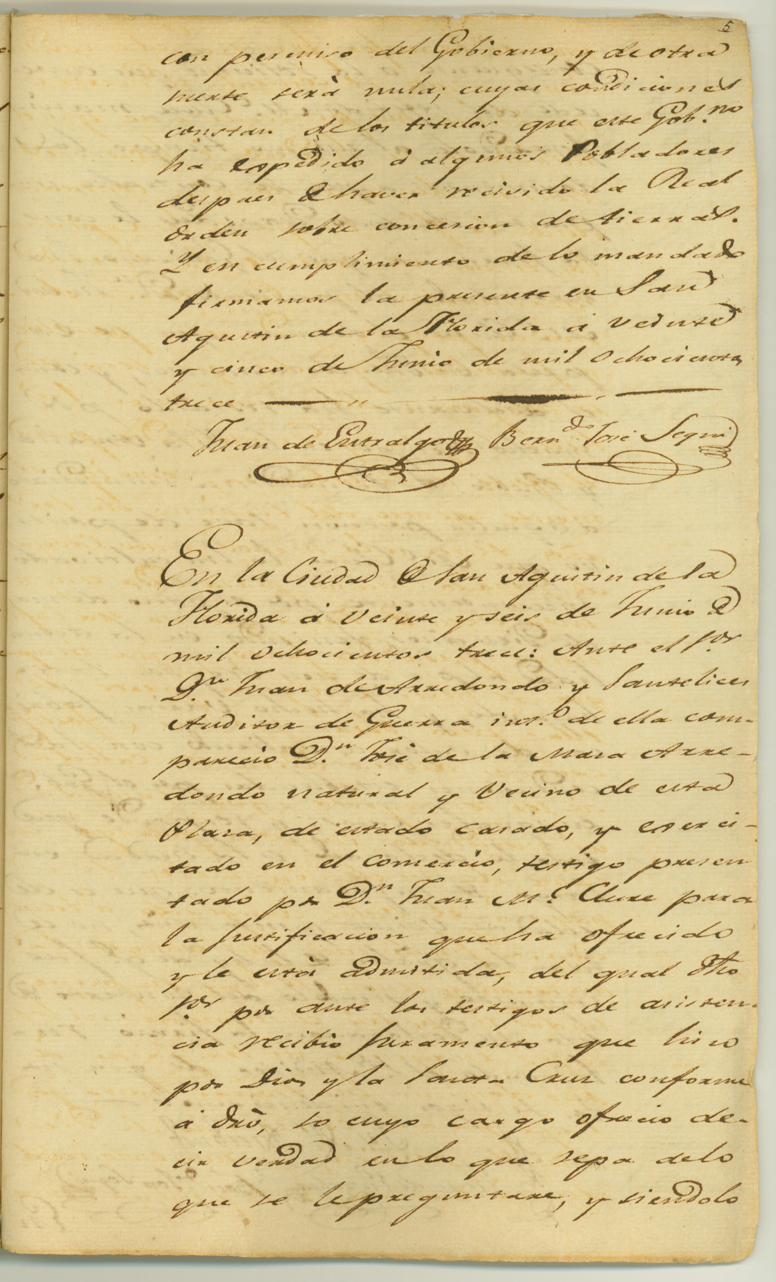 5
con permiso del Gobierno, y de otra
suerte será nula; cuyas condiciones
constan de los titulos que este Gob.no
ha espedido á algunos Pobladores
despues de haver recivido la Real
orden sobre concesion de tierras.
Y en cumplimiento de lo mandado
firmamos la presente en San
Agustin de la Florida á veinte
y cinco de Junio de mil ochocientos
trece
Juan de Entralgo Bern.do José Segui
En la Ciudad de San Agustin de la
Florida á veinte y seis de Junio de
mil ochocientos trece: Ante el S.or
D.n Juan de Arredondo y Santelices
Auditor de Guerra int.o de ella com-
parecio D.n José de la Maza Arre-
dondo natural y Vecino de esta
Plaza, de estado casado, y exerci-
tado en el comercio, testigo presen
tado por D.n Juan M.c Clure para
la justificacion que ha ofrecido
y le está admitida, del qual dho
S.or por ante los testigos de asisten-
cia recibió juramento que hizo
por Dios y la Santa Cruz conforme
á dró, so cuyo cargo ofrecio de-
cir verdad en lo que sepa de lo
que se le preguntare, y siendolo